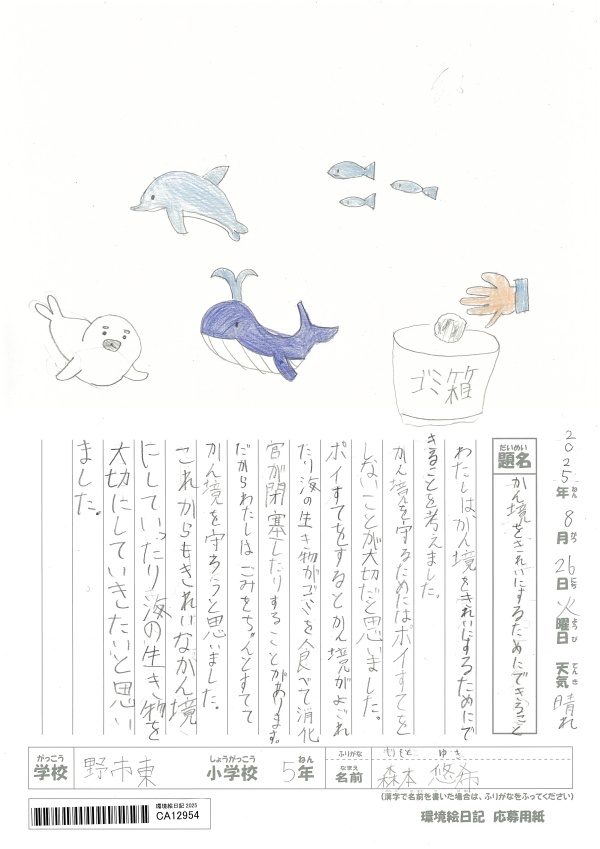 ゴミ箱
2025年 8月 26日 火曜日 天気 晴れ
ねん がつ にち ようび てんき
だいめい
題名 かん境をきれいにするためにできること
わたしは、かん境をきれいにするためにで
きることを考えました。
かん境を守るためにはポイすてを
しないことが大切だと思いました。
ポイすてをするとかん境がよごれ
たり海の生き物がゴミを食べて消化
官が閉塞したりすることがあります。
だからわたしは ごみをちゃんとすてて
かん境を守ろうと思いました。
これからもきれいなかん境
にしていったり海の生き物を
大切にしていきたいと思い
ました。
がっこう しょうがっこう ねん
学校 野市東 小学校 5年
ふりがな もりもと ゆき
なまえ
名前 森本 悠希
(漢字で名前を書いた場合は、ふりがなをふってください)
環境絵日記 2025
CA12954
環境絵日記 応募用紙